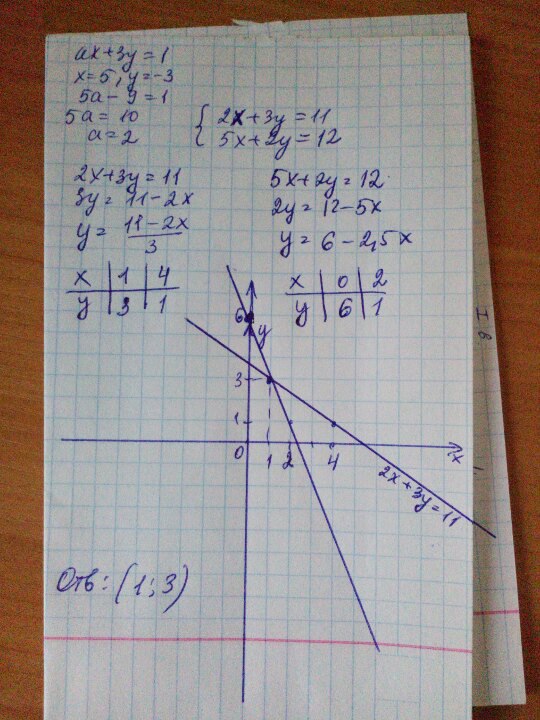 ax+3y=1
x=5, y=-3
5a-9=1
5a=10
a=2
{ 2x+3y=11
5x+2y=12
2x+3y=11
3y=11-2x
y= (11-2x)/3
x | 1 | 4
y | 3 | 1
5x+2y=12
2y=12-5x
y=6-2,5x
x | 0 | 2
y | 6 | 1
6 y
3
1
0 1 2 4 x
2x+3y=11
Отв: (1; 3)